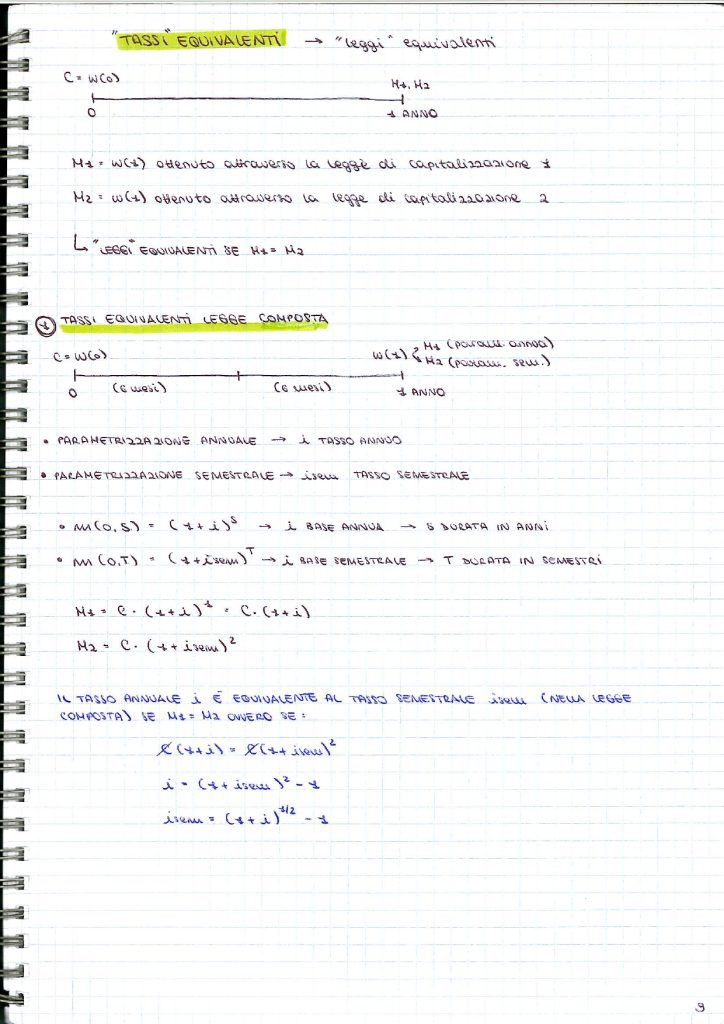 "TASSI" EQUIVALENTI → "leggi" equivalenti
C = W(0)
M1, M2
0
1 ANNO
M1 = W(1) ottenuto attraverso la legge di capitalizzazione 1
M2 = W(1) ottenuto attraverso la legge di capitalizzazione 2
↳ "LEGGI" EQUIVALENTI SE M1 = M2
① TASSI EQUIVALENTI LEGGE COMPOSTA
C = W(0)
W(1)
M1 (param. annua)
M2 (param. sem.)
0
(6 mesi)
(6 mesi)
1 ANNO
• PARAMETRIZZAZIONE ANNUALE → i TASSO ANNUO
• PARAMETRIZZAZIONE SEMESTRALE → isem TASSO SEMESTRALE
• m(0,S) = (1+i)^S → i BASE ANNUA → S DURATA IN ANNI
• m(0,T) = (1+isem)^T → i BASE SEMESTRALE → T DURATA IN SEMESTRI
M1 = C · (1+i)^1 = C · (1+i)
M2 = C · (1+isem)^2
IL TASSO ANNUALE i E' EQUIVALENTE AL TASSO SEMESTRALE isem (NELLA LEGGE
COMPOSTA) SE M1 = M2 OVVERO SE:
C(1+i) = C(1+isem)^2
i = (1+isem)^2 - 1
isem = (1+i)^1/2 - 1
9